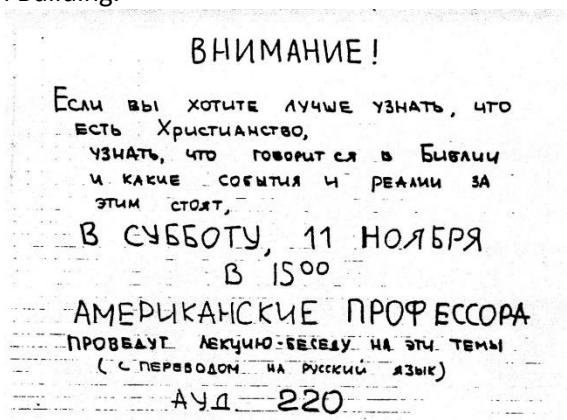 Building.
ВНИМАНИЕ!
Если вы хотите лучше узнать, что
есть Христианство,
узнать, что говорится в Библии
и какие события и реалии за
этим стоят,
В СУББОТУ, 11 НОЯБРЯ
В 15⁰⁰
АМЕРИКАНСКИЕ ПРОФЕССОРА
проведут лекцию-беседу на эти темы
(с переводом на русский язык)
АУД. 220